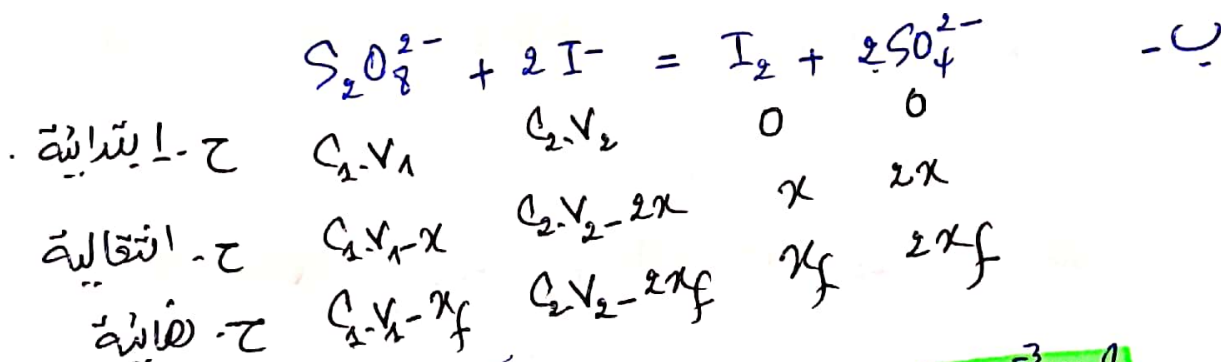 ب- S₂O₈²⁻ + 2 I⁻ = I₂ + 2SO₄²⁻
ح- ابتدائية . C₁.V₁ C₂.V₂ 0 0
ح- انتقالية C₁.V₁-x C₂.V₂-2x x 2x
ح- نهائية C₁.V₁-xf C₂.V₂-2xf xf 2xf